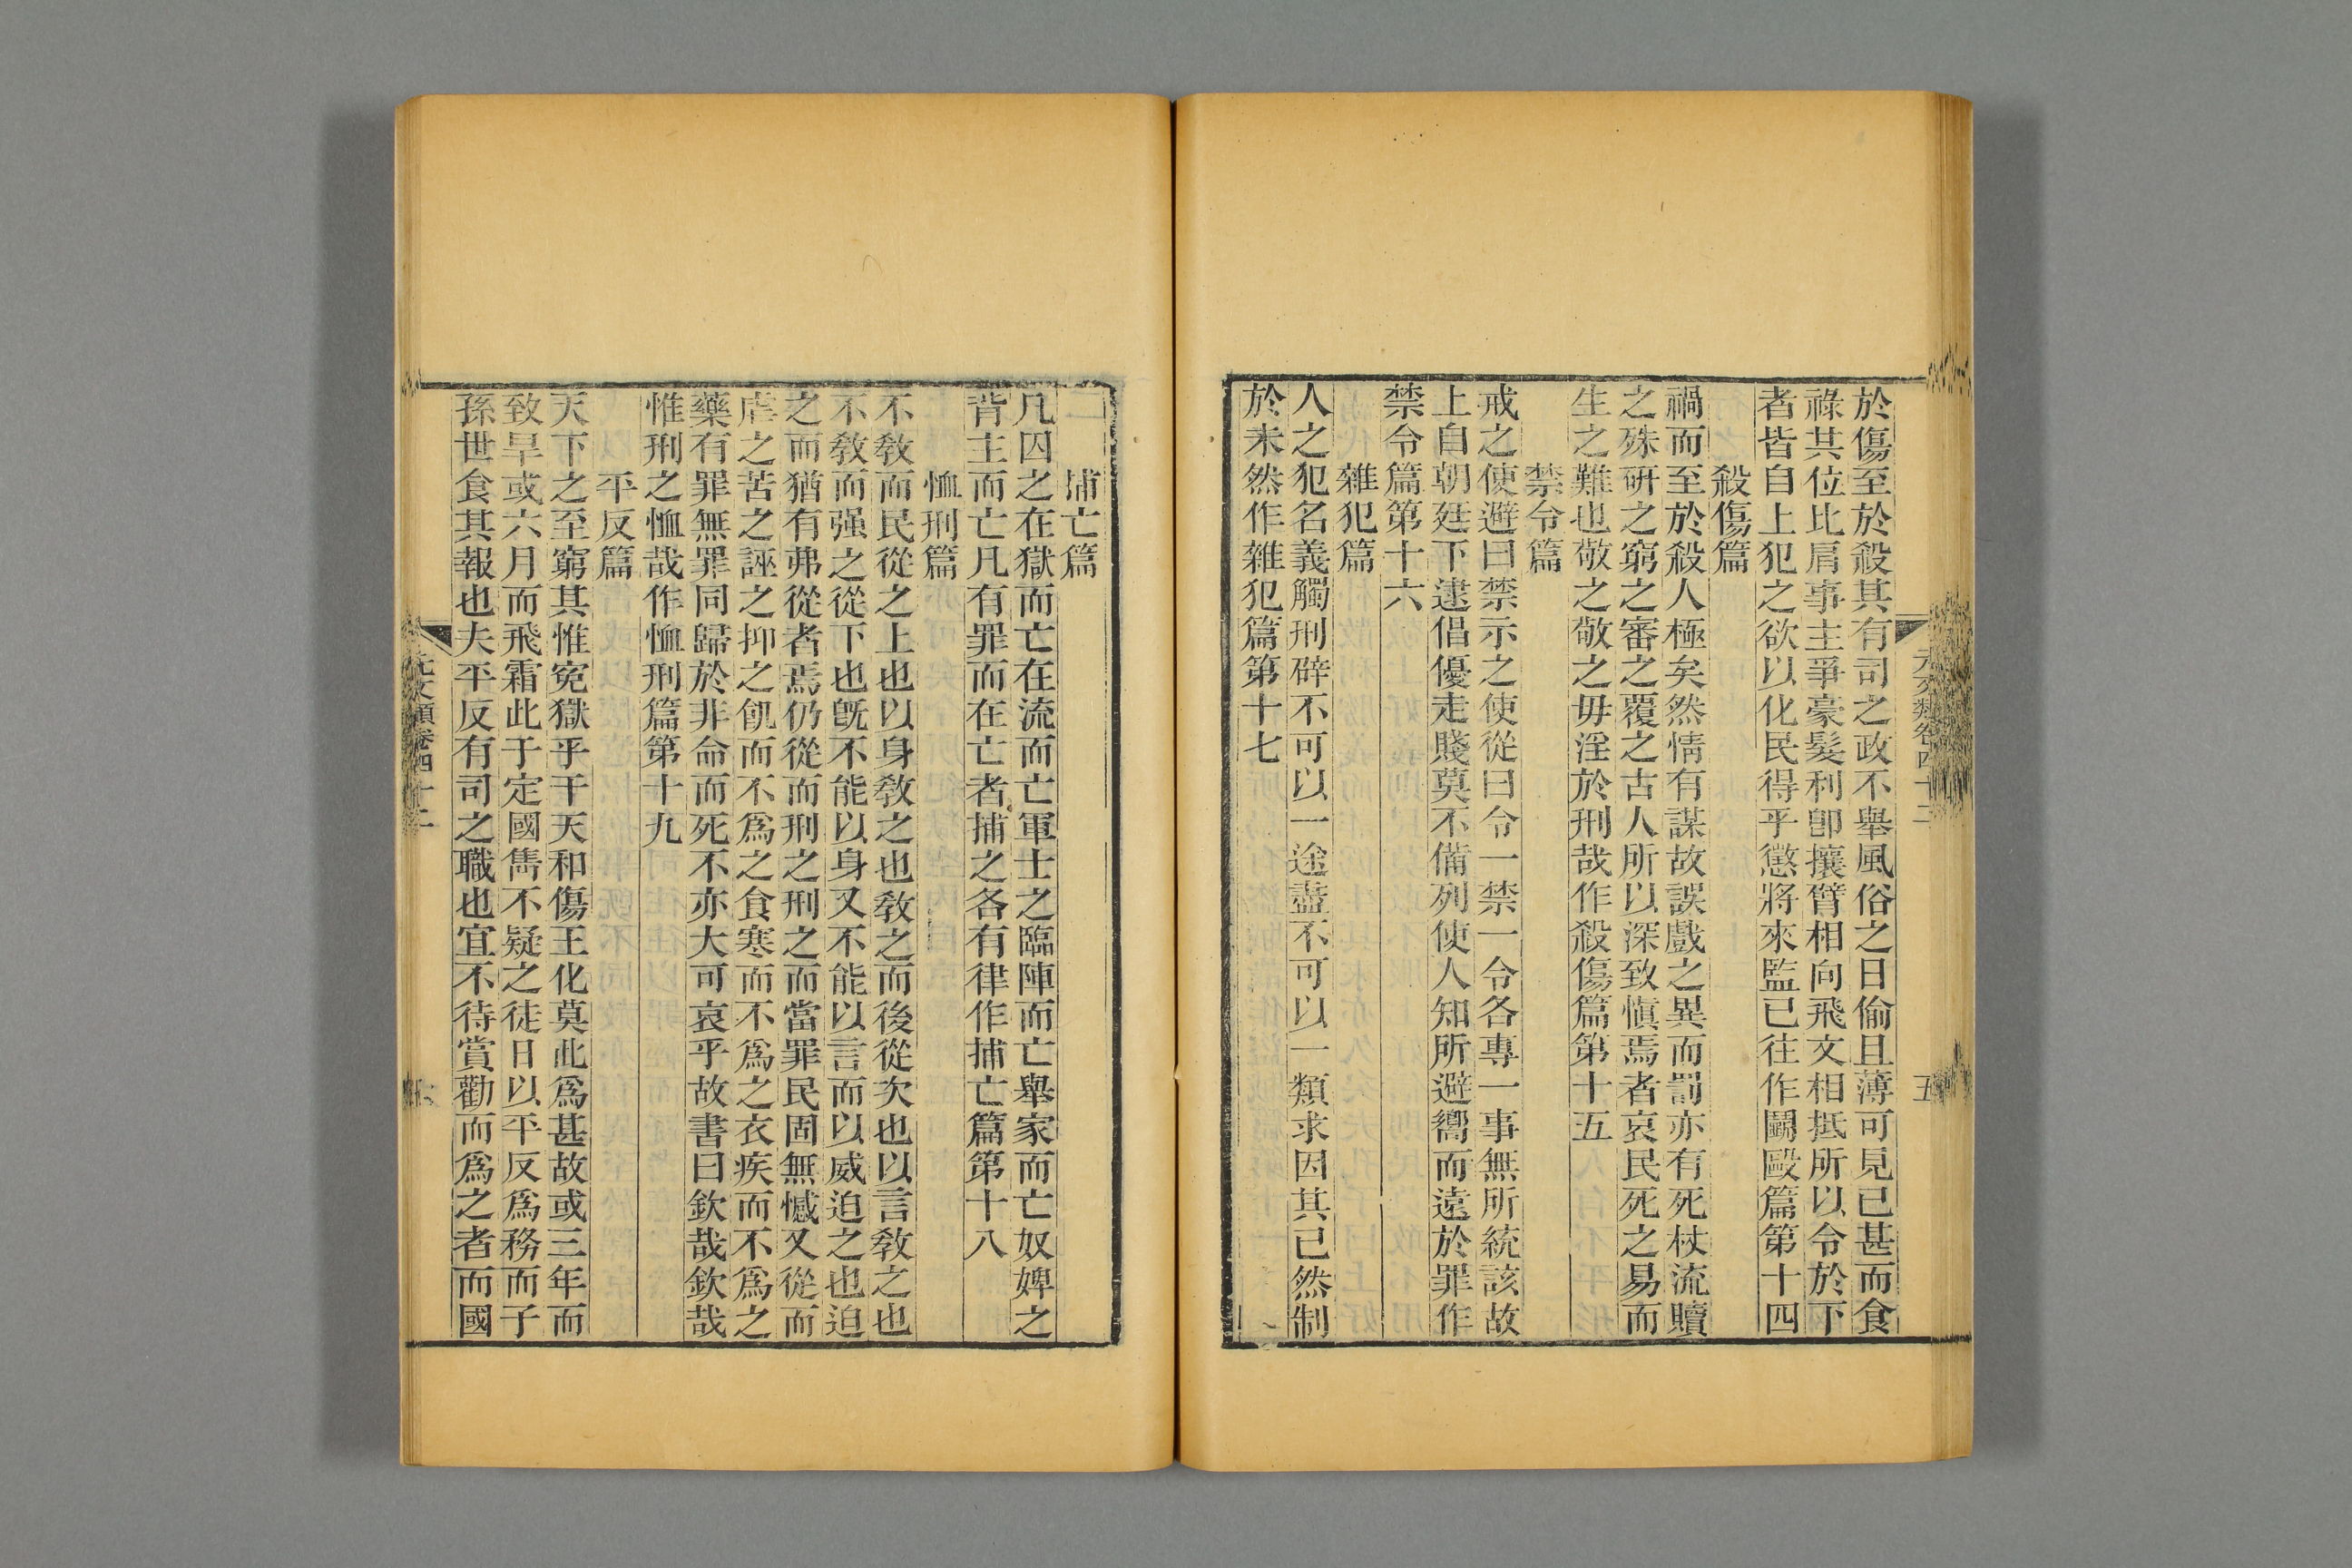 於傷至於殺其有司之政不舉風俗之日偷且薄可見已甚而食
祿其位比肩事主爭豪髮利卽攘臂相向飛文相抵所以令於下
者皆自上犯之欲以化民得乎懲將來監已往作鬭毆篇第十四
殺傷篇
禍而至於殺人極矣然情有謀故誤戲之異而罰亦有死杖流贖
之殊硏之窮之審之覆之古人所以深致愼焉者哀民死之易而
生之難也敬之敬之毋淫於刑哉作殺傷篇第十五
禁令篇
戒之使避曰禁示之使從曰令一禁一令各專一事無所統該故
上自朝廷下逮倡優走賤莫不備列使人知所避嚮而遠於罪作
禁令篇第十六
雜犯篇
人之犯名義觸刑辟不可以一途盡不可以一類求因其已然制
於未然作雜犯篇第十七
元文類卷四十二
五
捕亡篇
凡囚之在獄而亡在流而亡軍士之臨陣而亡舉家而亡奴婢之
背主而亡凡有罪而在亡者捕之各有律作捕亡篇第十八
恤刑篇
不敎而民從之上也以身敎之也敎之而後從次也以言敎之也
不敎而强之從下也旣不能以身又不能以言而以威迫之也迫
之而猶有弗從者焉仍從而刑之刑之而當罪民固無憾又從而
虐之苦之誣之抑之飢而不爲之食寒而不爲之衣疾而不爲之
藥有罪無罪同歸於非命而死不亦大可哀乎故書曰欽哉欽哉
惟刑之恤哉作恤刑篇第十九
平反篇
天下之至窮其惟寃獄乎干天和傷王化莫此爲甚故或三年而
致旱或六月而飛霜此于定國雋不疑之徒日以平反爲務而子
孫世食其報也夫平反有司之職也宜不待賞勸而爲之者而國
元文類卷四十二